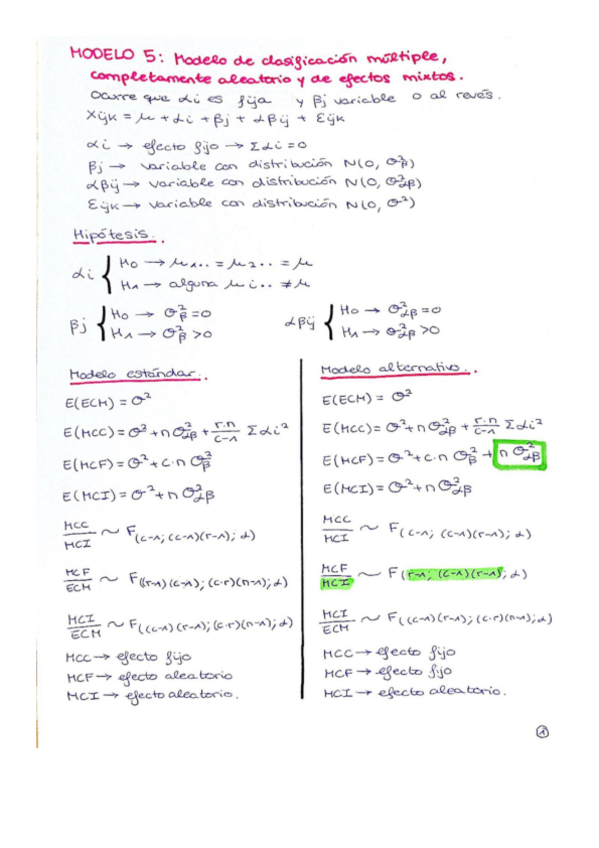 MODELO 5: Modelo de clasificación múltiple,
completamente aleatorio y de efectos mixtos.
Ocurre que αi es fija y βj variable o al revés.
Xijk = μ + αi + βj + αβij + εijk
αi → efecto fijo → Σαi = 0
βj → variable con distribución N(0, σ²β)
αβij → variable con distribución N(0, σ²αβ)
εijk → variable con distribución N(0, σ²)
Hipótesis.
αi { H0 → μ1.. = μ2.. = μ
H1 → alguna μi.. ≠ μ
βj { H0 → σ²β = 0
H1 → σ²β > 0
αβij { H0 → σ²αβ = 0
H1 → σ²αβ > 0
Modelo estándar.
E(ECM) = σ²
E(MCC) = σ² + n σ²αβ + r.n/c-1 Σαi²
E(MCF) = σ² + c.n σ²β
E(MCI) = σ² + n σ²αβ
MCC/MCI ~ F(c-1; (c-1)(r-1); α)
MCF/ECM ~ F((r-1)(c-1); (c.r)(n-1); α)
MCI/ECM ~ F((c-1)(r-1); (c.r)(n-1); α)
MCC → efecto fijo
MCF → efecto aleatorio
MCI → efecto aleatorio.
Modelo alternativo.
E(ECM) = σ²
E(MCC) = σ² + n σ²αβ + r.n/c-1 Σαi²
E(MCF) = σ² + c.n σ²β + n σ²αβ
E(MCI) = σ² + n σ²αβ
MCC/MCI ~ F(c-1; (c-1)(r-1); α)
MCF/MCI ~ F(r-1; (c-1)(r-1); α)
MCI/ECM ~ F((c-1)(r-1); (c.r)(n-1); α)
MCC → efecto fijo
MCF → efecto fijo
MCI → efecto aleatorio.
1